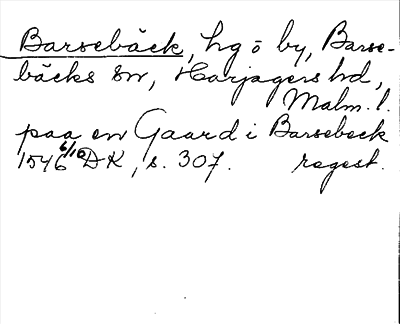 Barsebäck, hg o by, Barse-
bäcks sn, Harjagers hd,
Malm. l.
paa en Gaard i Barsebeck
1546 6/10 DK, s. 307. regest.